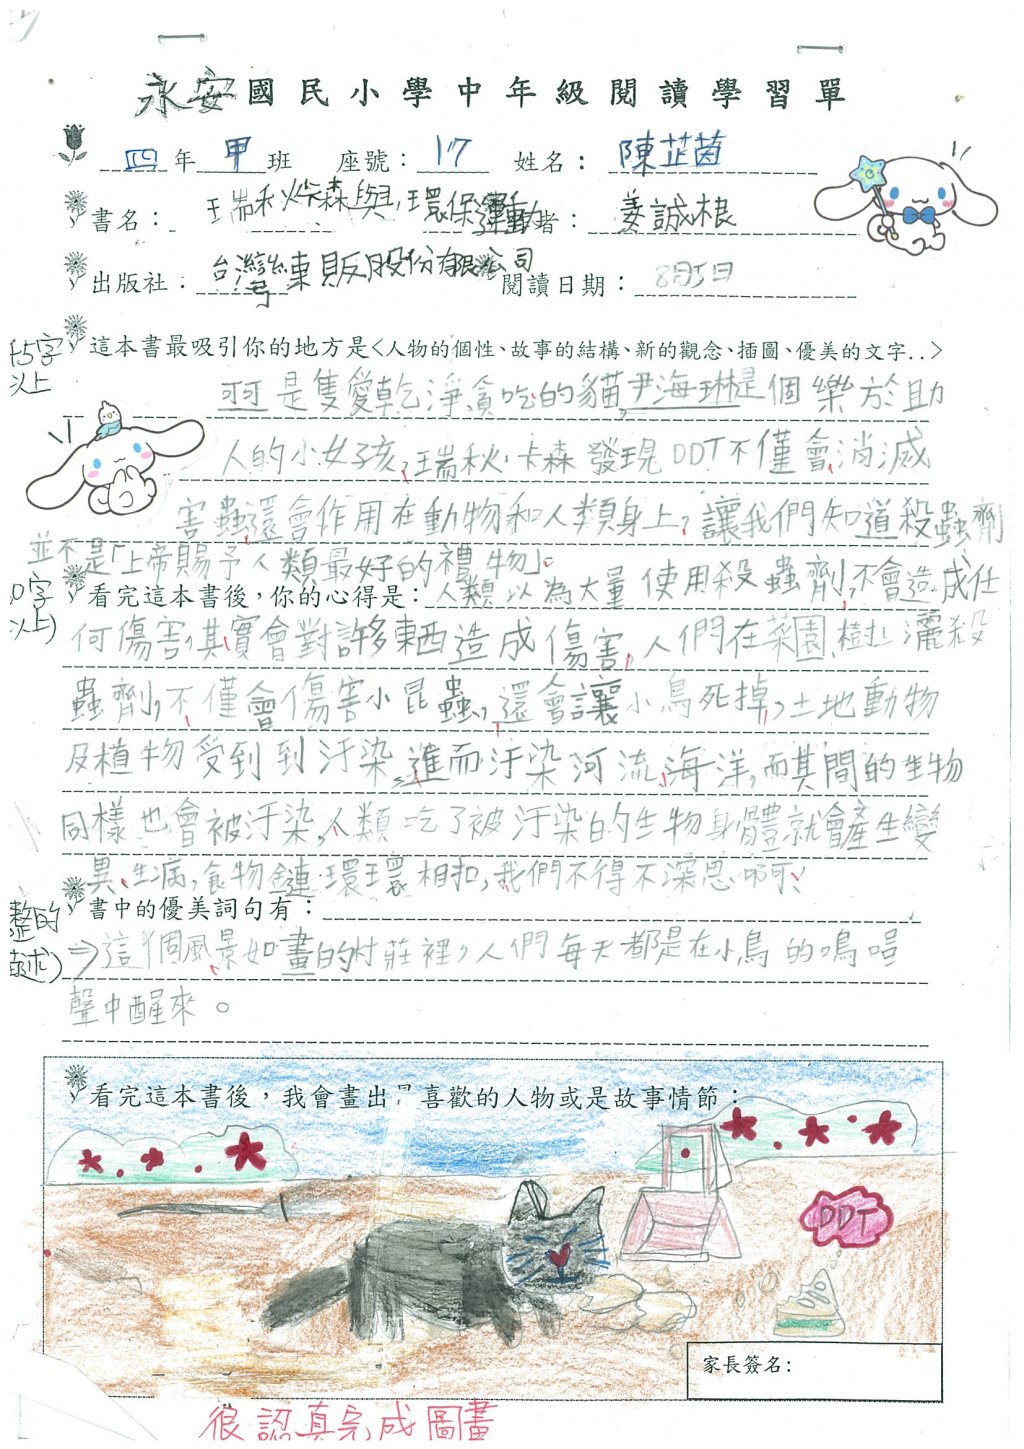 永安國民小學中年級閱讀學習單
四年甲班 座號：17 姓名：陳芷茵
書名：瑞秋卡森與環保運動 者：姜誠根
出版社：台灣東販股份有限公司 閱讀日期：8月5日
這本書最吸引你的地方是<人物的個性、故事的結構、新的觀念、插圖、優美的文字..>
字
以上
可可是隻愛乾淨貪吃的貓，尹海琳是個樂於助
人的小女孩，瑞秋·卡森發現DDT不僅會消滅
害蟲還會作用在動物和人類身上，讓我們知道殺蟲劑
並不是「上帝賜予人類最好的禮物」。
0字
以上)
看完這本書後，你的心得是：人類以為大量使用殺蟲劑，不會造成任
何傷害，其實會對許多東西造成傷害，人們在菜園、樹上灑殺
蟲劑，不僅會傷害小昆蟲，還會讓小鳥死掉，土地動物
及植物受到到汙染，進而汙染河流、海洋，而其間的生物
同樣也會被汙染，人類吃了被汙染的生物身體就會產生變
異、生病，食物鏈環環相扣，我們不得不深思啊！
整的
書中的優美詞句有：
⇒這個風景如畫的村莊裡，人們每天都是在小鳥的鳴唱
聲中醒來。
看完這本書後，我會畫出 喜歡的人物或是故事情節：
DDT
家長簽名：
很認真完成圖畫